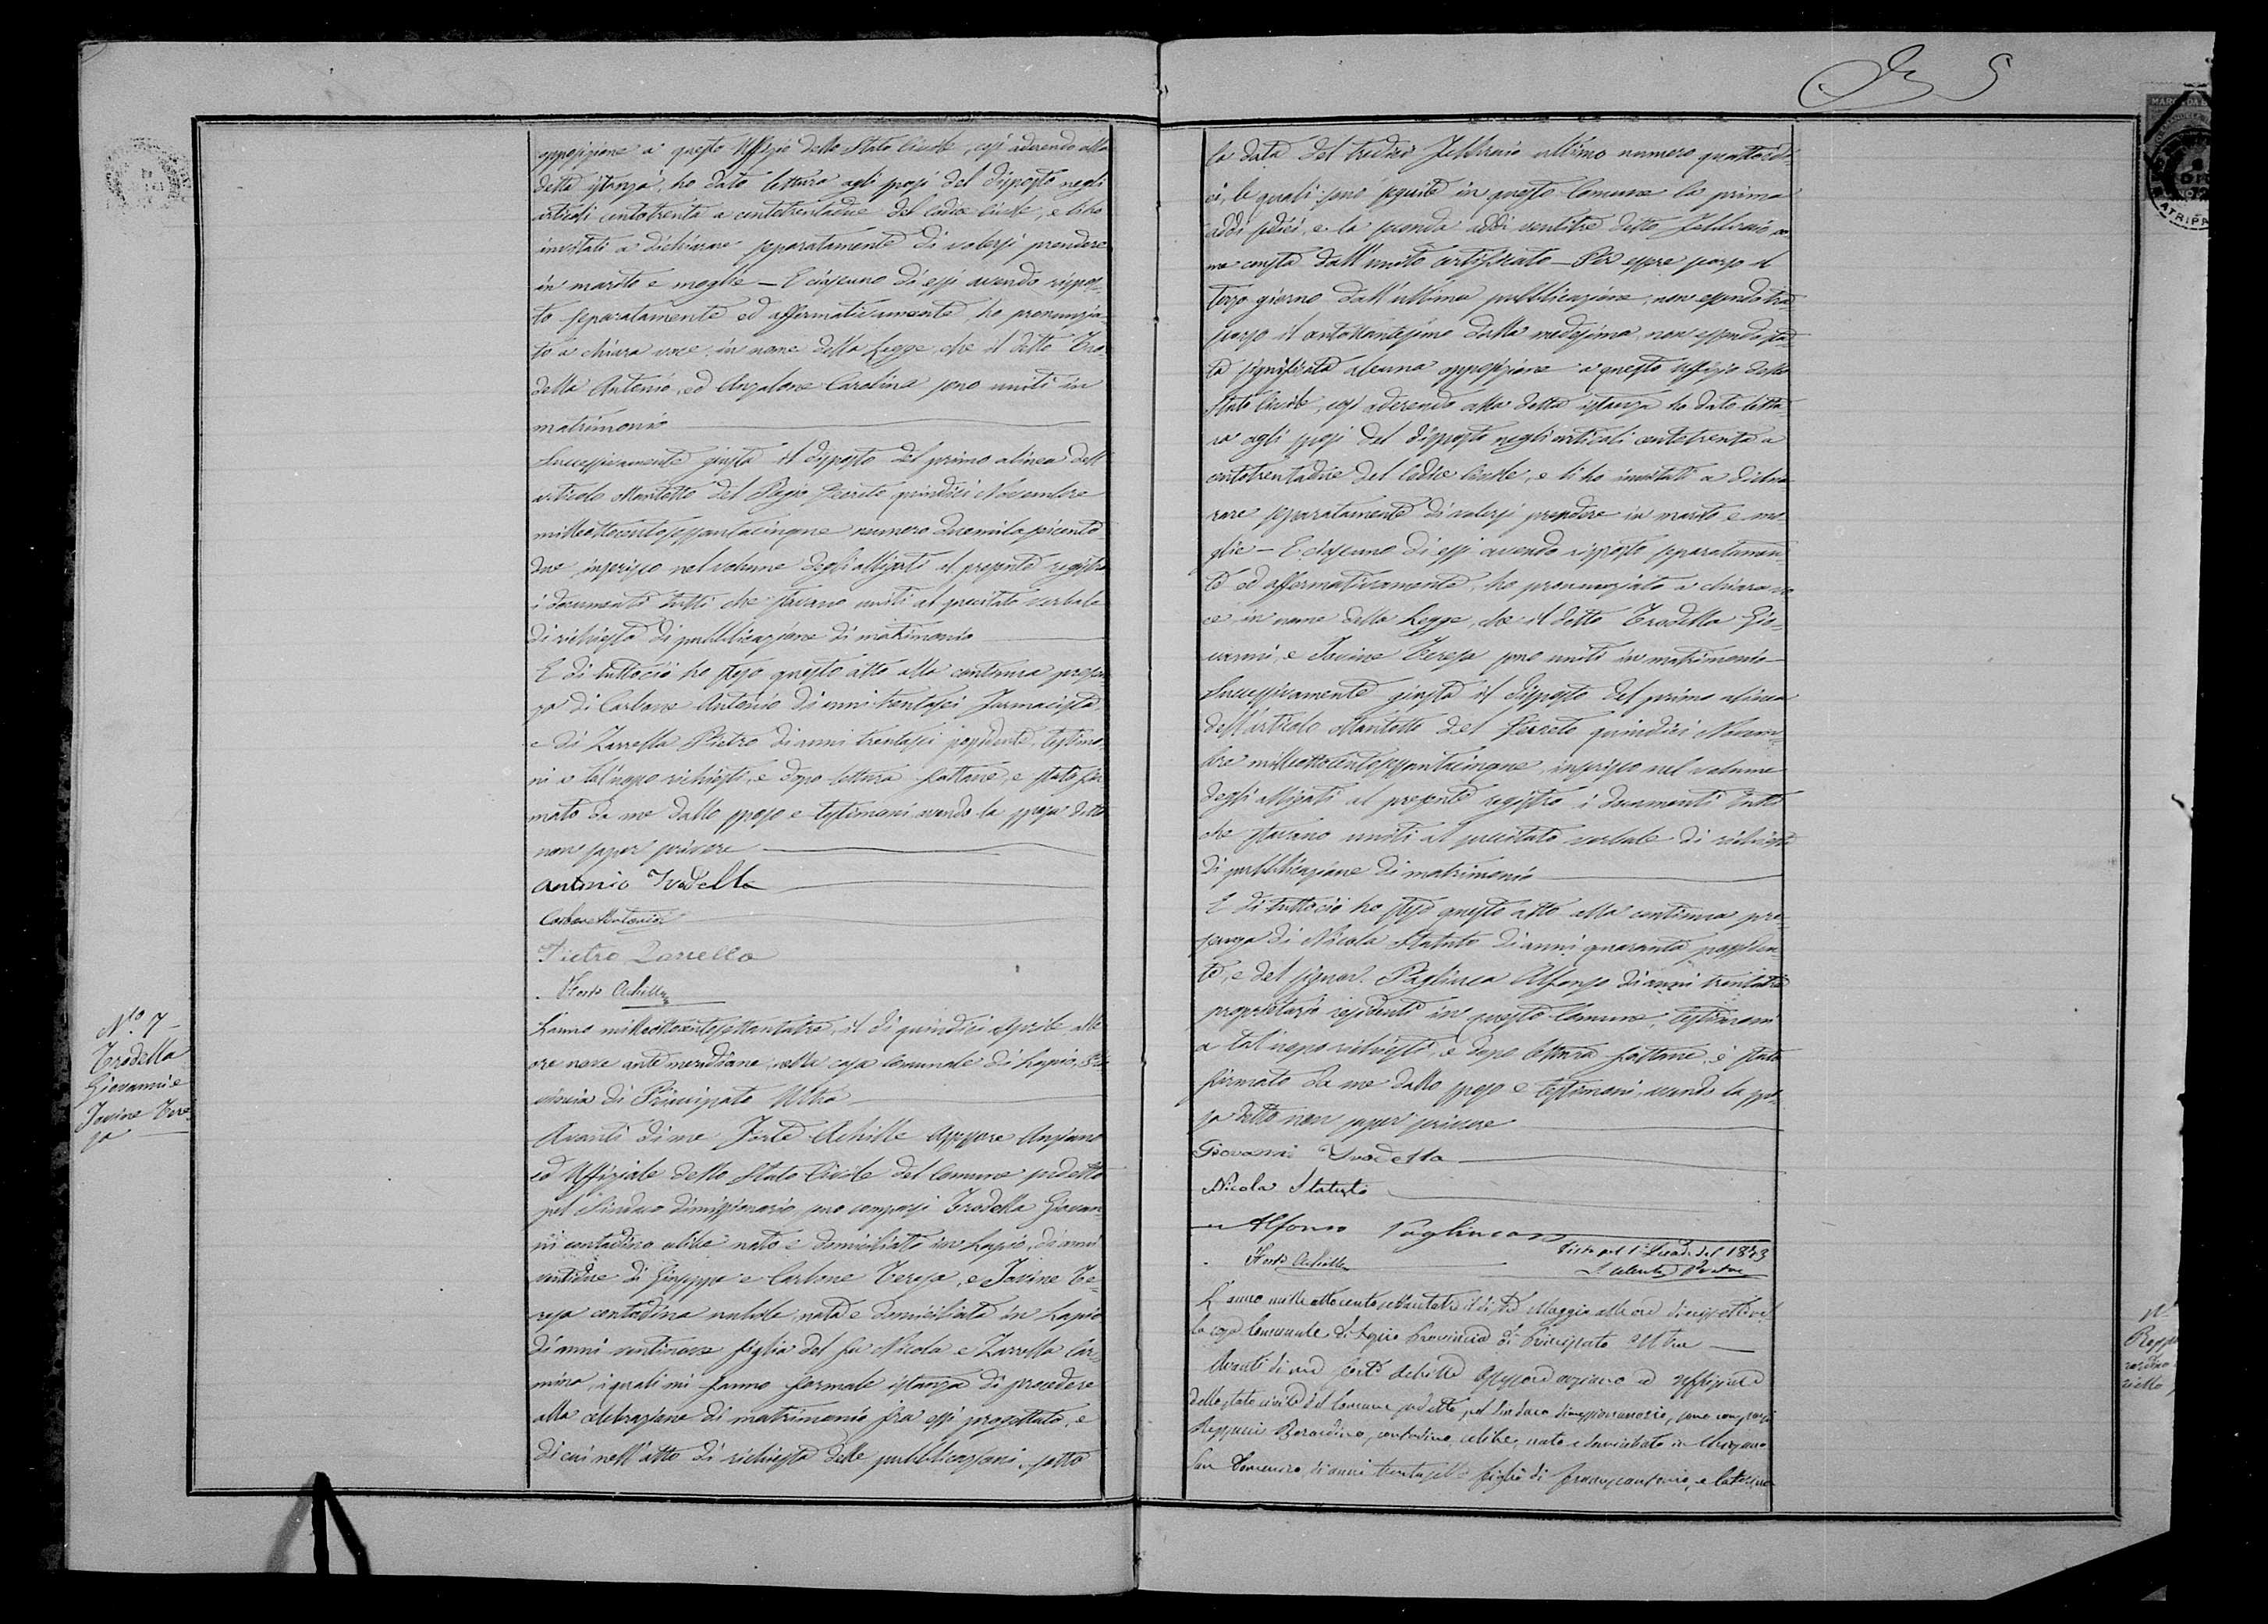 opposizione a questo Uffizio dello Stato Civile, così aderendo alla
detta istanza, ho dato lettura agli sposi del disposto negli
articoli centotrenta a centotrentadue del Codice Civile, e li ho
invitati a dichiarare separatamente di volersi prendere
in marito e moglie — E ciascuno di essi avendo rispos-
to separatamente ed affermativamente, ho pronunzia-
to a chiara voce in nome della Legge, che il detto Tro-
della Antonio, ed Anzalone Carolina sono uniti in
matrimonio
Successivamente giusta il disposto del primo alinea dell'
articolo settantotto del Regio Decreto quindici Novembre
milleottocentosessantacinque numero duemilaseicento
due inserisco nel volume degli alligati al presente registro
i documenti tutti che stavano uniti al precitato verbale
di richiesta di pubblicazione di matrimonio
E di tuttociò ho steso questo atto alla continua presen-
za di Carbone Antonio di anni trentasei Farmacista,
e di Zarrella Pietro di anni trentasei possidente, testimo-
ni a tal'uopo richiesti, e dopo lettura fattane, è stato fir-
mato da me dallo sposo e testimoni avendo la sposa detto
non saper scrivere
Antonio Trodella
Carbone Antonio
Pietro Zarrella
Forte Achille
N.o 7
Trodella
Giovanni e
Iovine Tere-
sa
L'anno milleottocentosettantatre, il dì quindici Aprile alle
ore nove antemeridiane nella casa Comunale di Lapio, Pro-
vincia di Principato Ultra
Avanti di me Forte Achille Assessore Anziano
ed Uffiziale dello Stato Civile del Comune sudetto
pel Sindaco dimissionario, sono comparsi Trodella Giovan-
ni contadino celibe nato e domiciliato in Lapio, di anni
ventidue di Giuseppe e Carbone Teresa, e Iovine Te-
resa contadina nubile, nata e domiciliata in Lapio
di anni ventinove figlia del fu Nicola e Zarrella Car-
mina, i quali mi fanno formale istanza di procedere
alla celebrazione di matrimonio fra essi progettato, e
di cui nell'atto di richiesta delle pubblicazioni, sotto
5
la data del tredici Febbraio ultimo numero quattordi-
ci, le quali sono seguite in questo Comune la prima
addì sedici, e la seconda addì ventitre detto Febbraio co-
me consta dall'unito certificato — Per essere scorso il
terzo giorno dall'ultima pubblicazione, non essendo tra-
scorso il centottantesimo dalla medesima, non essendo sta-
ta significata alcuna opposizione a questo Uffizio dello
Stato Civile, così aderendo alla detta istanza ho dato lettu-
ra agli sposi del disposto negli articoli centotrenta a
centotrentadue del Codice Civile, e li ho invitati a dichia-
rare separatamente di volersi prendere in marito e mo-
glie — E ciascuno di essi avendo risposto separatamen-
te ed affermativamente, ho pronunziato a chiara vo-
ce in nome della Legge, che il detto Trodella Gio-
vanni, e Iovine Teresa sono uniti in matrimonio
Successivamente giusta il disposto del primo alinea
dell'articolo settantotto del Decreto quindici Novem-
bre milleottocentosessantacinque, inserisco nel volume
degli alligati al presente registro i documenti tutti
che stavano uniti al precitato verbale di richiesta
di pubblicazione di matrimonio
E di tuttociò ho steso questo atto alla continua pre-
senza di Nicola Statuto di anni quaranta possiden-
te, e del signor Pagliuca Alfonso di anni trentatre
proprietario residenti in questo Comune, testimoni
a tal'uopo richiesti, e dopo lettura fattane, è stato
firmato da me dallo sposo e testimoni, avendo la spo-
sa detto non saper scrivere
Giovanni Trodella
Nicola Statuto
Alfonso Pagliuca
Forte Achille
1873
L'anno milleottocentosettantatre il dì tre Maggio alle ore diciassette nel
la casa Comunale di Lapio Provincia di Principato Ultra
Avanti di me Forte Achille Assessore anziano ed uffiziale
dello stato civile del Comune sudetto, pel Sindaco dimissionario, sono comparsi
Reppucci Berardino, contadino, celibe, nato e domiciliato in Chiusano
San Domenico, di anni figlio di Francescantonio, e
N.
MARCA DA B
ATRIPA